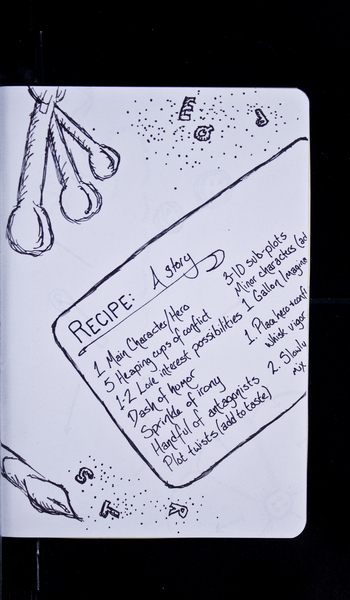 RECIPE: A story
1 Main Character/Hero
5 Heaping cups of conflict
1-2 Love interest possibilities
Dash of humor
Sprinkle of irony
Handful of antagonists
Plot twists (add to taste)
3-10 sub-plots
Minor characters
1 Gallon
1. Place hero
whisk vigor
2. Slowly
mix